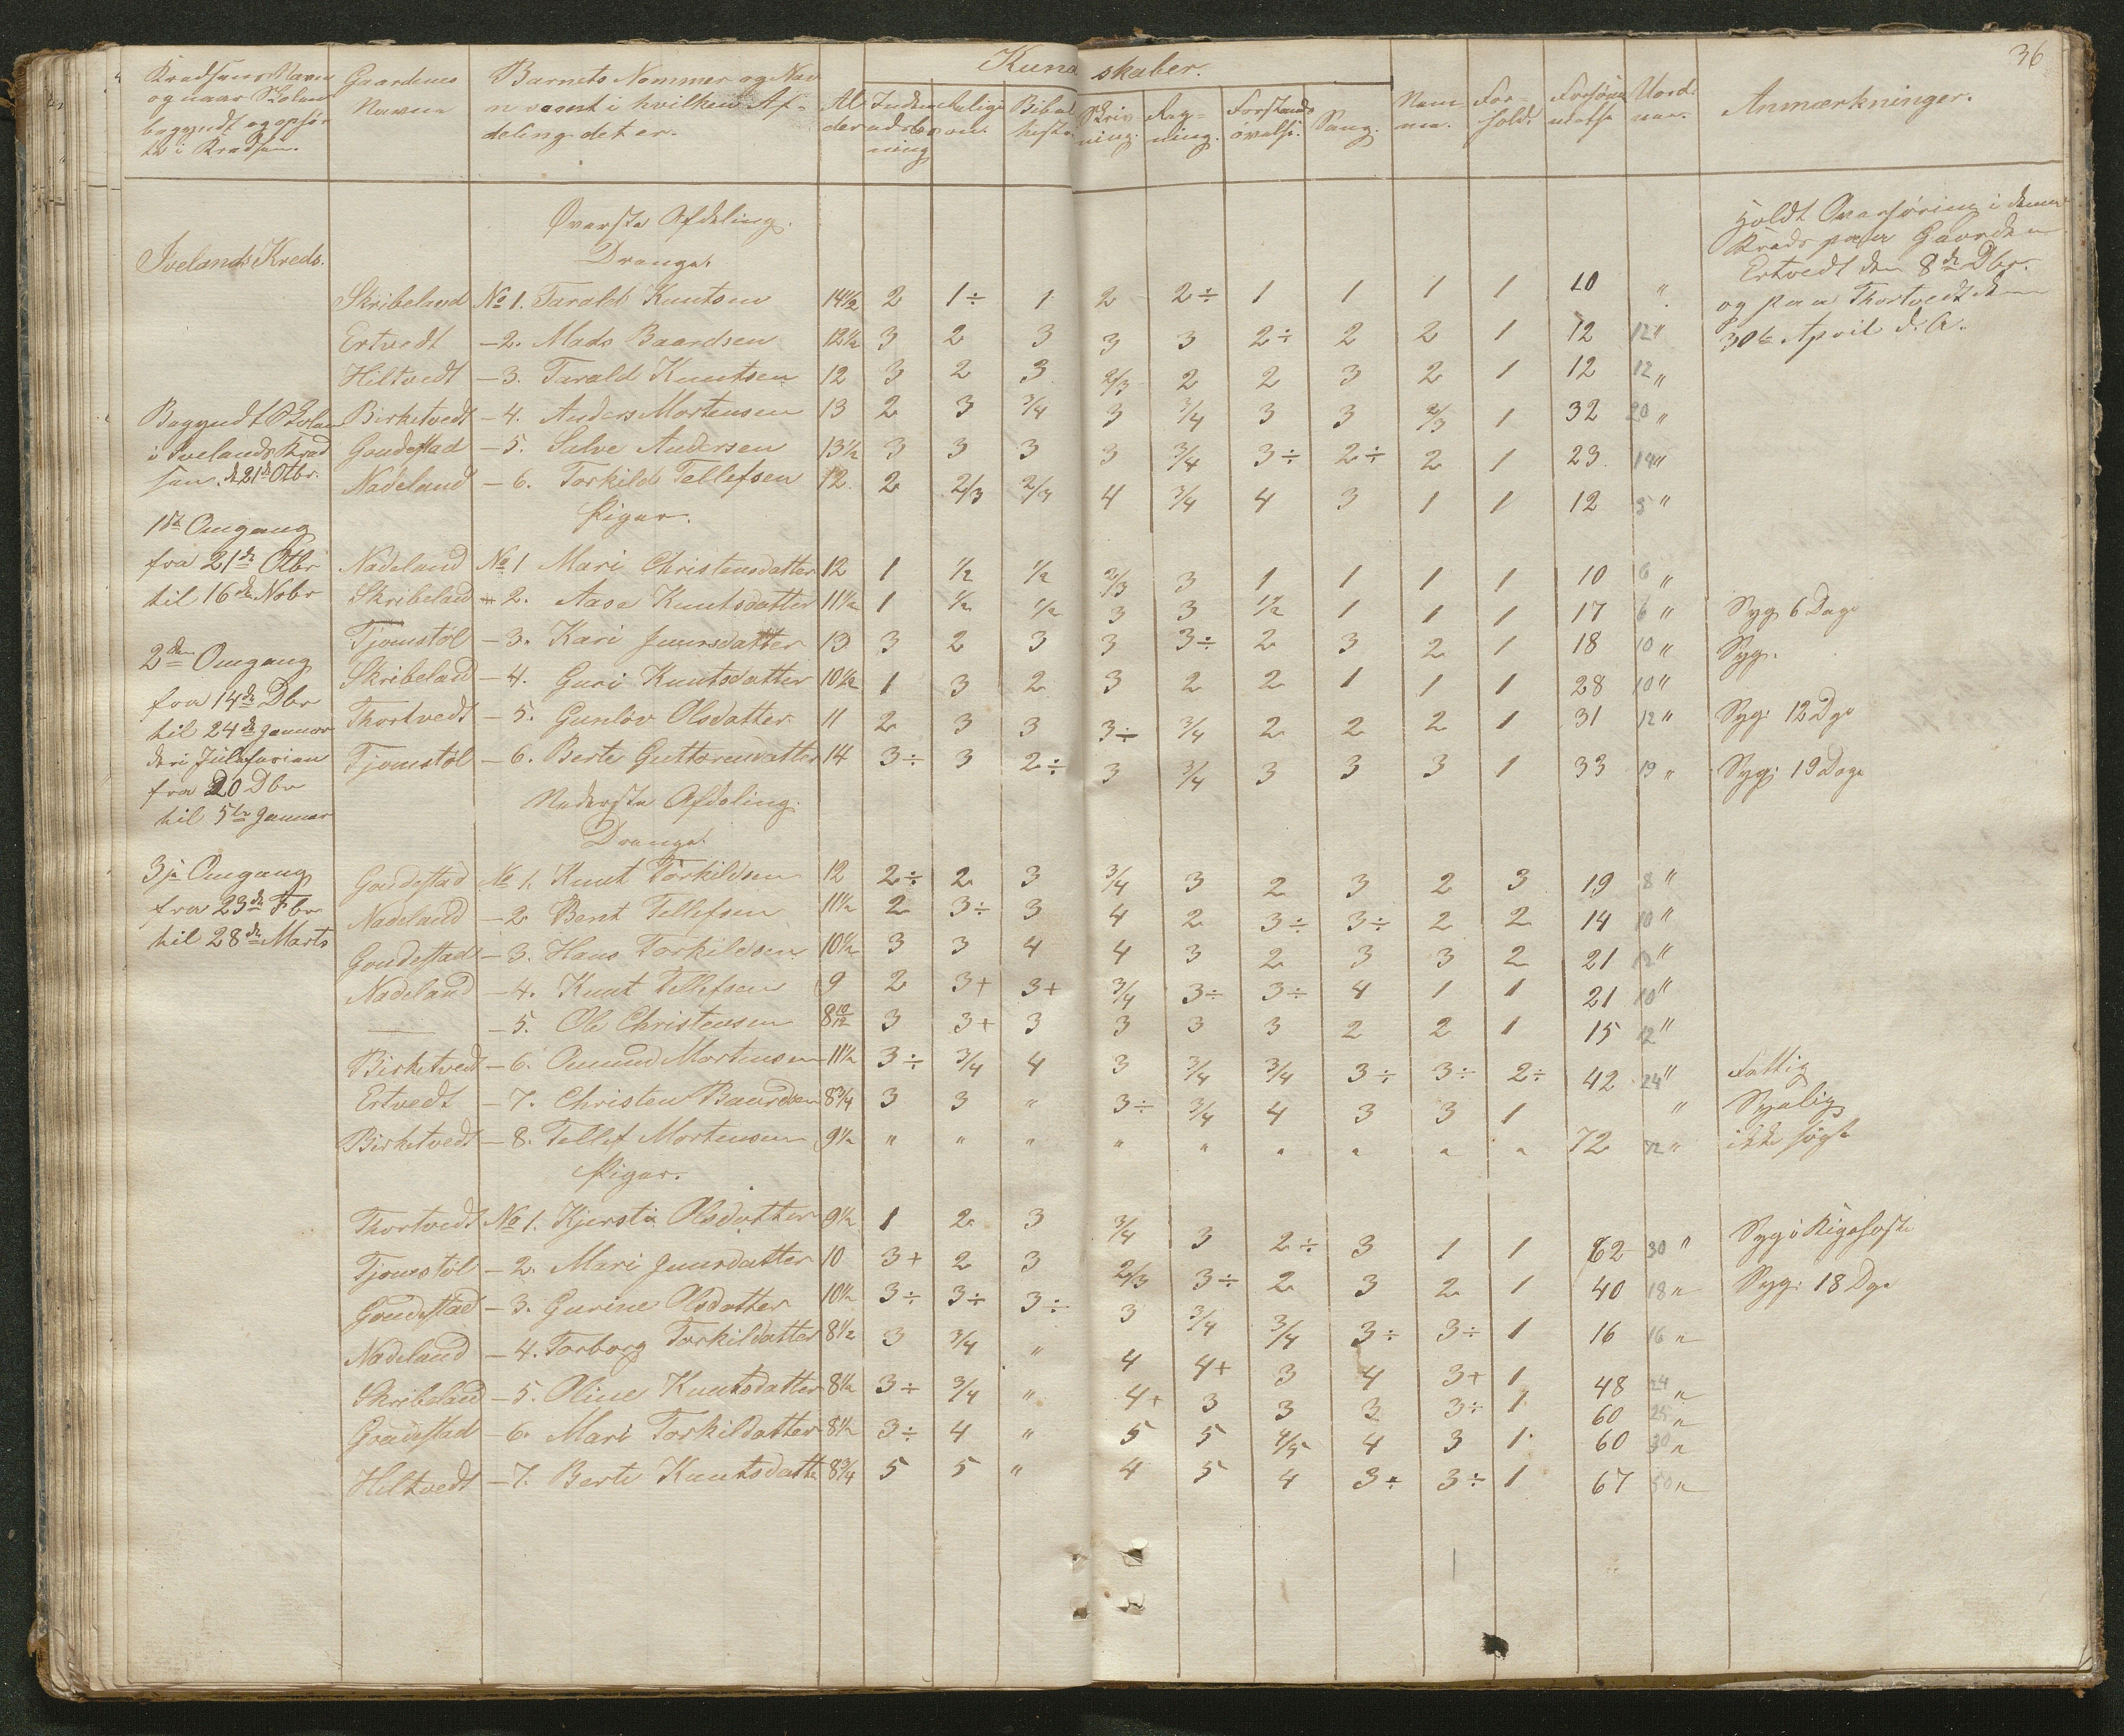 36
Kredsens Navn
og naar Skolen
begyndt og ophør
te i Kredsen.
Gaardenes
Navne
Barnets Nommer og Nav
n samt i hvilken Af-
deling det er.
Kundskaber.
Al
der
Indenads læs
ning
Religi
on.
Bibel
histo.
Skriv
ning.
Reg-
ning.
Forstands
øvelse.
Sang.
Nem
me.
For-
hold.
Forsøm
melse
Anmærkninger.
Øverste Afdeling.
Drenge.
Ivelands Kreds.
Holdt Overhøring i denne
Kreds paa Gaarden
Ertvedt den 8de Dbr.
og paa Thortvedt den
30te April d. A.
Skribeland No 1. Tarald Knutsen 14½ 2 1÷ 1 2 2÷ 1 1 1 1 10 "
Ertvedt - 2. Mads Baardsen 12½ 3 2 3 3 3 2÷ 2 2 1 12 12 "
Hiltvedt - 3. Tarald Knutsen 12 3 2 3 2/3 2 2 3 2 1 12 12 "
Begyndt Skolen
i Ivelands Kred
sen. d. 21de Otbr.
Birketvedt - 4. Anders Mortensen 13 2 3 3/4 3 3/4 3 3 2/3 1 32 20 "
Goudestad - 5. Salve Andersen 13½ 3 3 3 3 3/4 3÷ 2÷ 2 1 23 14 "
Nadeland - 6. Torkild Tellefsen 12 2 2/3 2/3 4 3/4 4 3 1 1 12 5 "
Piger.
1ste Omgang
fra 21de Otbr
til 16de Nobr
Nadeland No 1 Mari Christensdatter 12 1 1/2 1/2 2/3 3 1 1 1 1 10 6 "
Skribeland - 2. Aase Knutsdatter 11½ 1 1/2 1/2 3 3 1/2 1 1 1 17 6 " Syg 6 Dage
Tjomstöl - 3. Kari Juursdatter 13 3 2 3 3 3÷ 2 3 2 1 18 10 " Syg.
2den Omgang
fra 14de Dbr
til 24de Januar
deri Juleferien
fra 20 Dbr
til 5te Januar
Skribeland - 4. Guri Knutsdatter 10½ 1 3 2 3 2 2 1 1 1 28 10 "
Thortvedt - 5. Gunlöv Olsdatter 11 2 3 3 3÷ 3/4 2 2 2 1 31 12 " Syg: 12 Dge
Tjomstöl - 6. Berte Guttormsdatter 14 3÷ 3 2÷ 3 3/4 3 3 3 1 33 19 " Syg: 19 Dage
Nederste Afdeling.
Drenge.
3je Omgang
fra 23de Fbr
til 28de Marts
Goudestad No 1. Knut Torkildsen 12 2÷ 2 3 3/4 3 2 3 2 3 19 8 "
Nadeland - 2 Bent Tellefsen 11½ 2 3÷ 3 4 2 3÷ 3÷ 2 2 14 10 "
Goudestad - 3. Hans Torkildsen 10½ 3 3 4 4 3 2 3 3 2 21 12 "
Nadeland - 4. Knut Tellefsen 9 2 3+ 3+ 3/4 3÷ 3÷ 4 1 1 21 10 "
— - 5. Ole Christensen 8 10/12 3 3+ 3 3 3 3 2 2 1 15 12 "
Birketvedt - 6. Omund Mortensen 11½ 3÷ 3/4 4 3 3/4 3/4 3÷ 3÷ 2÷ 42 24 " Fattig
Ertvedt - 7. Christen Baardsen 8¾ 3 3 " 3÷ 3/4 4 3 3 1 " Sygelig
Birketvedt - 8. Tellef Mortensen 9½ " " " " " " " " " 72 72 " ikke søgt
Piger.
Thortvedt No 1. Kjersti Olsdatter 9½ 1 2 3 3/4 3 2÷ 3 1 1 62 30 " Syg i Kigehoste
Tjomstöl - 2. Mari Juursdatter 10 3+ 2 3 2/3 3÷ 2 3 2 1 40 18 " Syg: 18 Dge
Goudestad - 3. Gurine Olsdatter 10½ 3÷ 3÷ 3÷ 3 3/4 3/4 3÷ 3÷ 1 16 16 "
Nadeland - 4. Torborg Torkildatter 8½ 3 3/4 " 4 4+ 3 4 3+ 1 48 24 "
Skribeland - 5. Oline Knutsdatter 8½ 3÷ 3/4 " 4+ 3 3 3 3÷ 1 60 25 "
Goudestad - 6. Mari Torkildatter 8½ 3÷ 4 " 5 5 4/5 4 3 1 60 30 "
Hiltvedt - 7. Berte Knutsdatte 8¾ 5 5 " 4 5 4 3÷ 3÷ 1 67 50 "